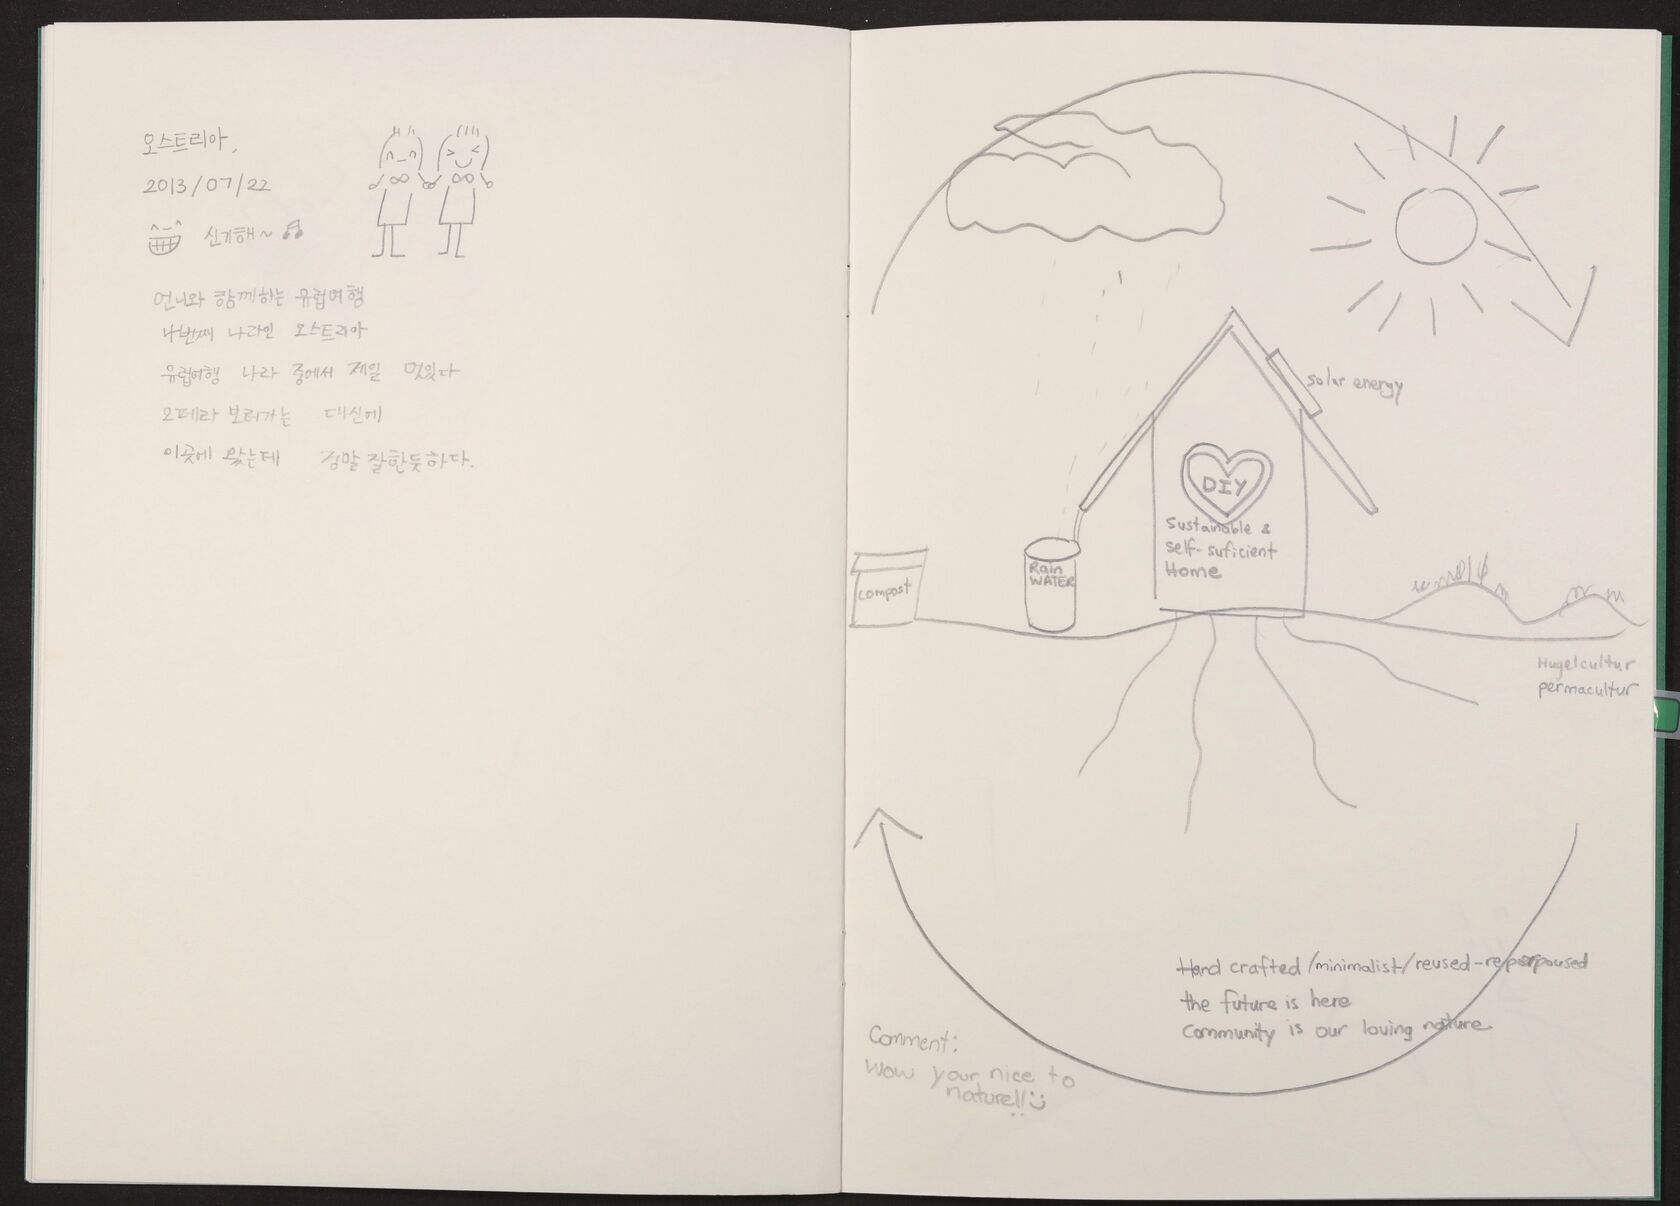 오스트리아,
2013/07/22
신기해~
언니와 함께하는 유럽여행
4번째 나라인 오스트리아
유럽여행 나라 중에서 제일 멋있다
오페라 보러가는 대신에
이곳에 왔는데 정말 잘한듯하다.
solar energy
DIY
Sustainable &
self-suficient
Home
Rain
WATER
compost
Hugelcultur
permacultur
Hand crafted/minimalist/reused-repurposed
the future is here
Community is our loving nature
Comment:
Wow your nice to
nature!!